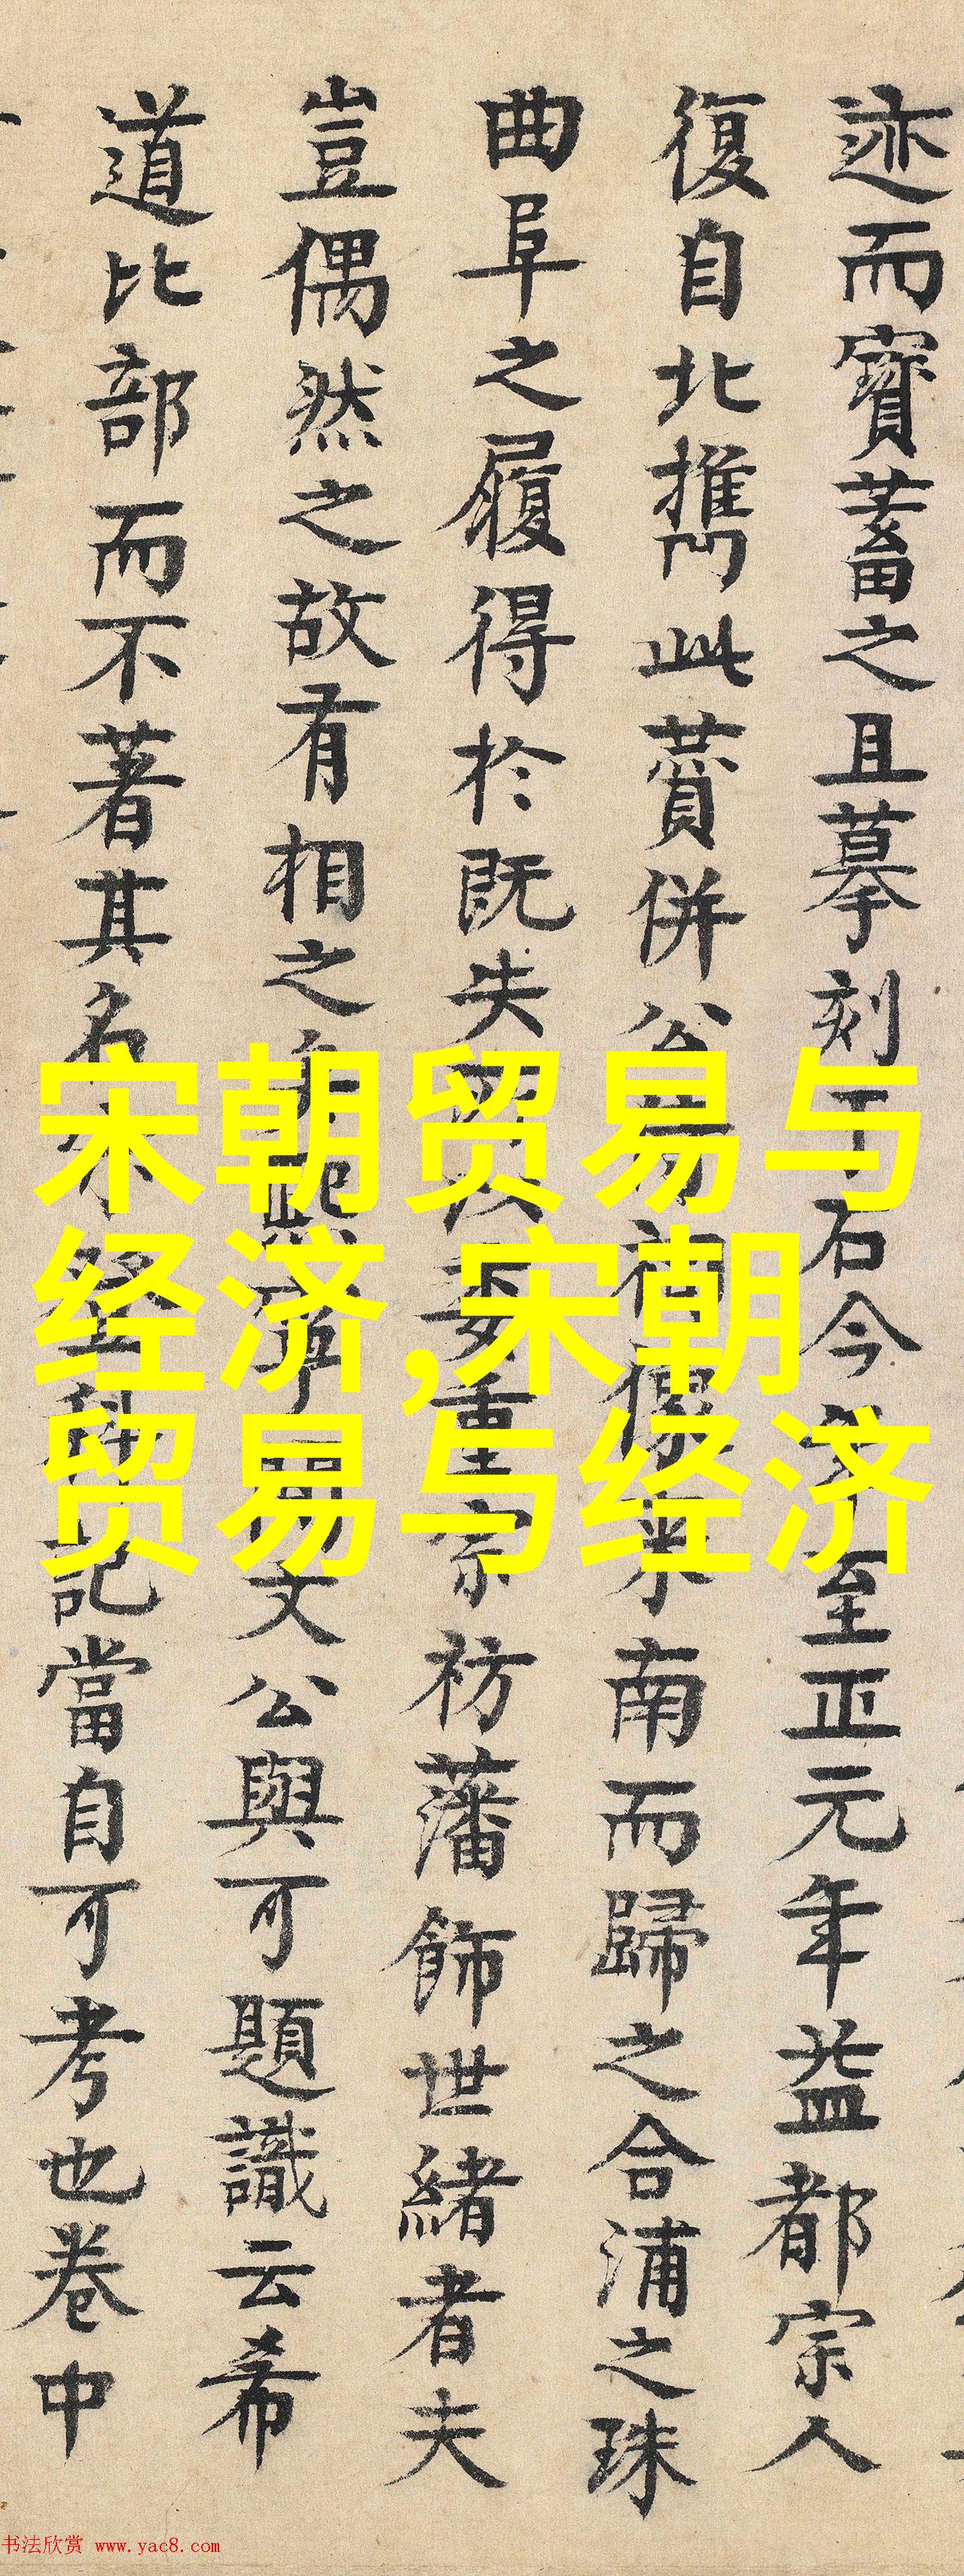 迹而寳蓄之且摹刻于石今至正元年益都宗人
復自北攜此賷併公南而歸之合浦之珠
曲阜之履得於既失重宗祊藩飾世緒者夫
豈偶然之故有相之文公與可題識云希
道比部而不著其名記當自可考也卷中
宋朝贸易与
经济,宋朝
贸易与经济
书法欣赏 www.yac8.com